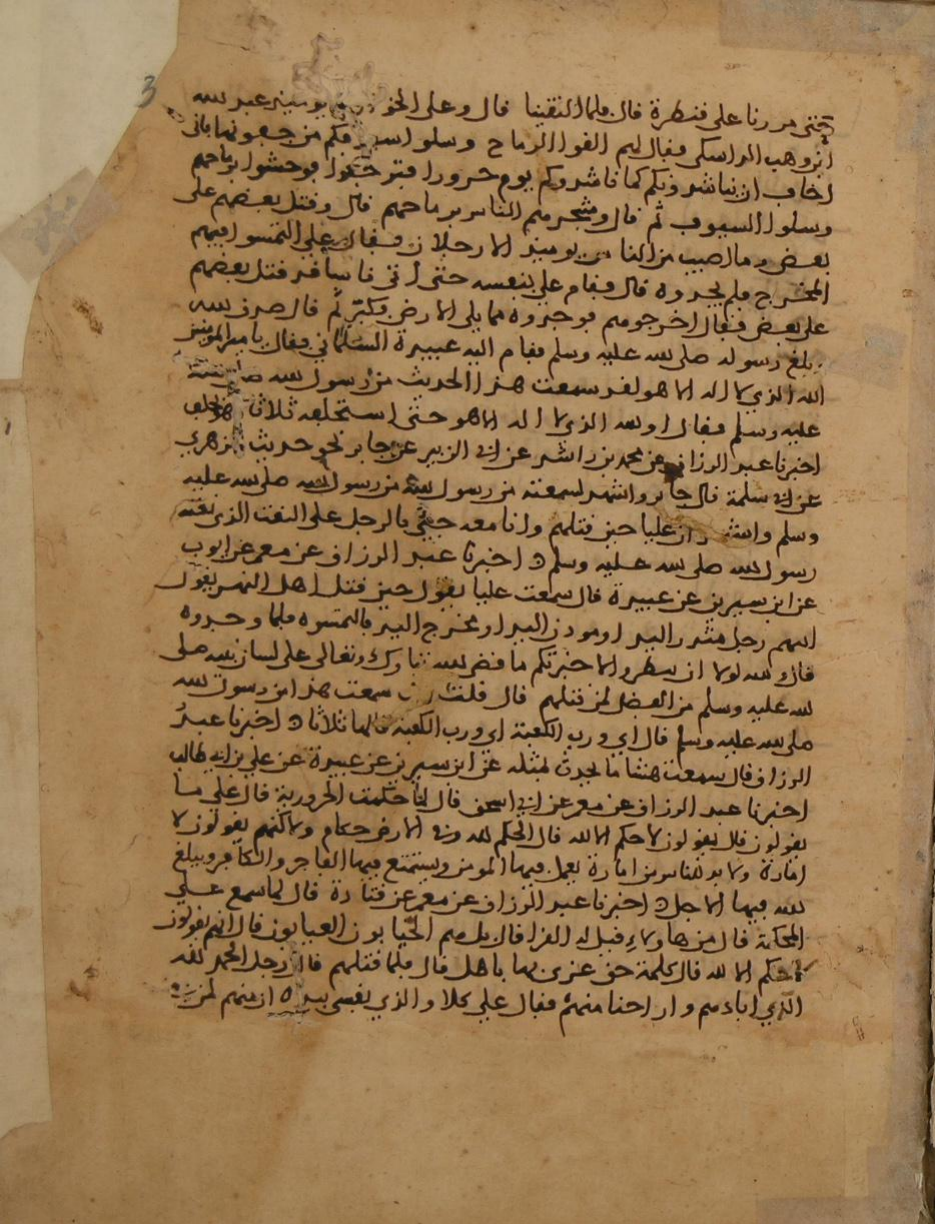 3
حتى مررنا على قنطرة قال فلما التقينا قال وعلى الخوارج يومئذ عبد الله
ابن وهب الراسبي فقال لهم القوا الرماح وسلوا سيوفكم من جفونها فاني
اخاف ان يناشدوكم كما ناشدوكم يوم حرورا فرجعوا فوحشوا برماحهم
وسلوا السيوف ثم قال وشجرهم الناس برماحهم قال وقتل بعضهم على
بعض وما اصيب من الناس يومئذ الا رجلان فقال علي التمسوا فيهم
المخدج فلم يجدوه قال فقام علي بنفسه حتى اتى ناسا قد قتل بعضهم
على بعض فقال اخرجوهم فوجدوه مما يلي الارض فكبر ثم قال صدق الله
وبلغ رسوله صلى الله عليه وسلم فقام اليه عبيدة السلماني فقال يا امير المؤمنين
الله الذي لا اله الا هو لقد سمعت هذا الحديث من رسول الله صلى الله
عليه وسلم فقال اي والله الذي لا اله الا هو حتى استحلفه ثلاثا وهو يحلف
اخبرنا عبد الرزاق عن محمد بن راشد عن ابي الزبير عن جابر نحو حديث الزهري
عن ابي سلمة قال جابر واشهد لسمعته من رسول الله صلى الله عليه
وسلم واشهد ان عليا حين قتلهم وانا معه جيء بالرجل على النعت الذي نعته
رسول الله صلى الله عليه وسلم ٥ اخبرنا عبد الرزاق عن معمر عن ايوب
عن ابن سيرين عن عبيدة قال سمعت عليا يقول حين قتل اهل النهر يقول
فيهم رجل مثدن اليد او مودن اليد او مخدج اليد فالتمسوه فلما وجدوه
قال والله لولا ان تبطروا لاخبرتكم ما قضى الله تبارك وتعالى على لسان نبيه صلى
الله عليه وسلم من الفضل لمن قتلهم قال قلت سمعت هذا من رسول الله
صلى الله عليه وسلم قال اي ورب الكعبة اي ورب الكعبة قالها ثلاثا ٥ اخبرنا عبد
الرزاق قال سمعت هشاما يحدث بمثله عن ابن سيرين عن عبيدة عن علي بن ابي طالب
اخبرنا عبد الرزاق عن معمر عن ابي اسحق قال لما حكمت الحرورية قال علي ما
يقولون قال يقولون لا حكم الا لله قال الحكم لله وفي الارض حكام ولكنهم يقولون لا
امارة ولا بد للناس من امارة يعمل فيها المومن ويستمتع فيها الفاجر والكافر ويبلغ
الله فيها الاجل ٥ اخبرنا عبد الرزاق عن معمر عن قتادة قال لما سمع علي
المحكمة قال من هاولاء قيل له القرا قال بل هم الخيابون العيابون قال انهم يقولون
لا حكم الا لله قال كلمة حق عزي بها باطل قال فلما قتلهم قال رجل الحمد لله
الذي ابادهم واراحنا منهم فقال علي كلا والذي نفسي بيده ان منهم لمن في